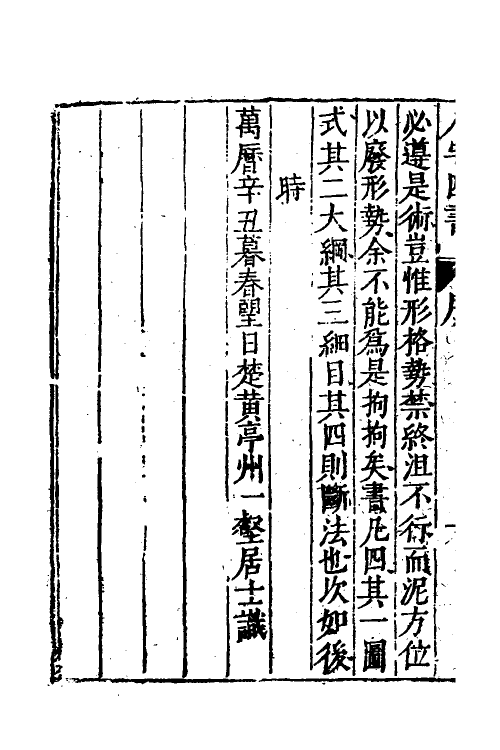 必導是術豈惟形格勢禁終沮不行而泥方位
以廢形勢余不能爲是拘拘矣書凡四其一圖
式其二大綱其三細目其四則斷法也次如後
時
萬曆辛丑暮春望日楚黃亭州一壑居士識